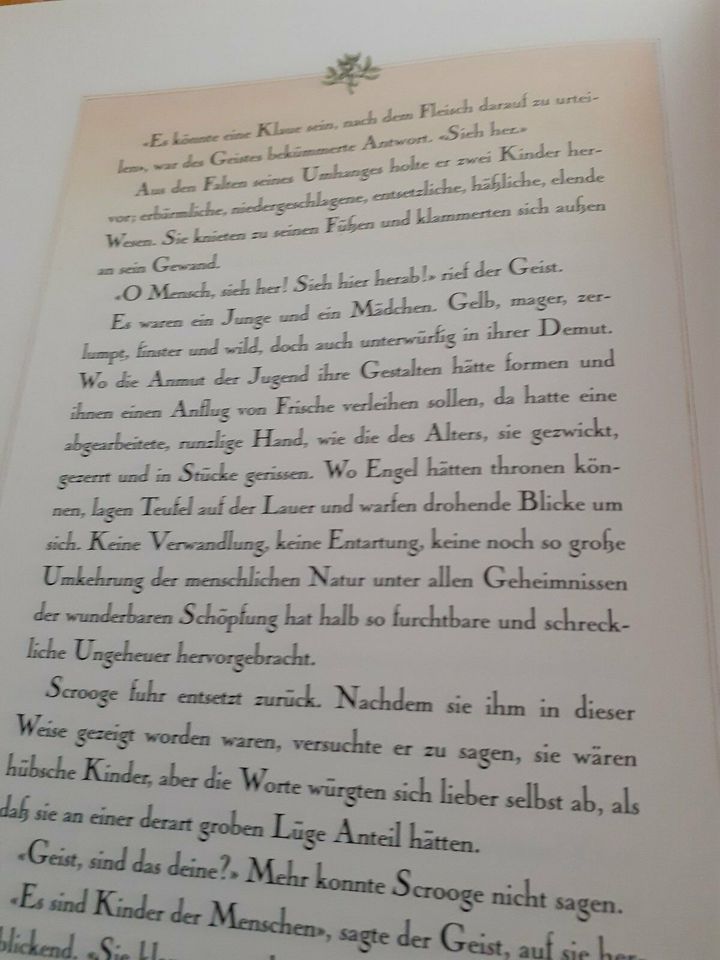 «Es könnte eine Klaue sein, nach dem Fleisch darauf zu urtei-
len», war des Geistes bekümmerte Antwort. «Sieh her.»
Aus den Falten seines Umhanges holte er zwei Kinder her-
vor; erbärmliche, niedergeschlagene, entsetzliche, häßliche, elende
Wesen. Sie knieten zu seinen Füßen und klammerten sich außen
an sein Gewand.
«O Mensch, sieh her! Sieh hier herab!» rief der Geist.
Es waren ein Junge und ein Mädchen. Gelb, mager, zer-
lumpt, finster und wild, doch auch unterwürfig in ihrer Demut.
Wo die Anmut der Jugend ihre Gestalten hätte formen und
ihnen einen Anflug von Frische verleihen sollen, da hatte eine
abgearbeitete, runzlige Hand, wie die des Alters, sie gezwickt,
gezerrt und in Stücke gerissen. Wo Engel hätten thronen kön-
nen, lagen Teufel auf der Lauer und warfen drohende Blicke um
sich. Keine Verwandlung, keine Entartung, keine noch so große
Umkehrung der menschlichen Natur unter allen Geheimnissen
der wunderbaren Schöpfung hat halb so furchtbare und schreck-
liche Ungeheuer hervorgebracht.
Scrooge fuhr entsetzt zurück. Nachdem sie ihm in dieser
Weise gezeigt worden waren, versuchte er zu sagen, sie wären
hübsche Kinder, aber die Worte würgten sich lieber selbst ab, als
daß sie an einer derart groben Lüge Anteil hätten.
«Geist, sind das deine?» Mehr konnte Scrooge nicht sagen.
«Es sind Kinder der Menschen», sagte der Geist, auf sie her-
blickend. «Sie